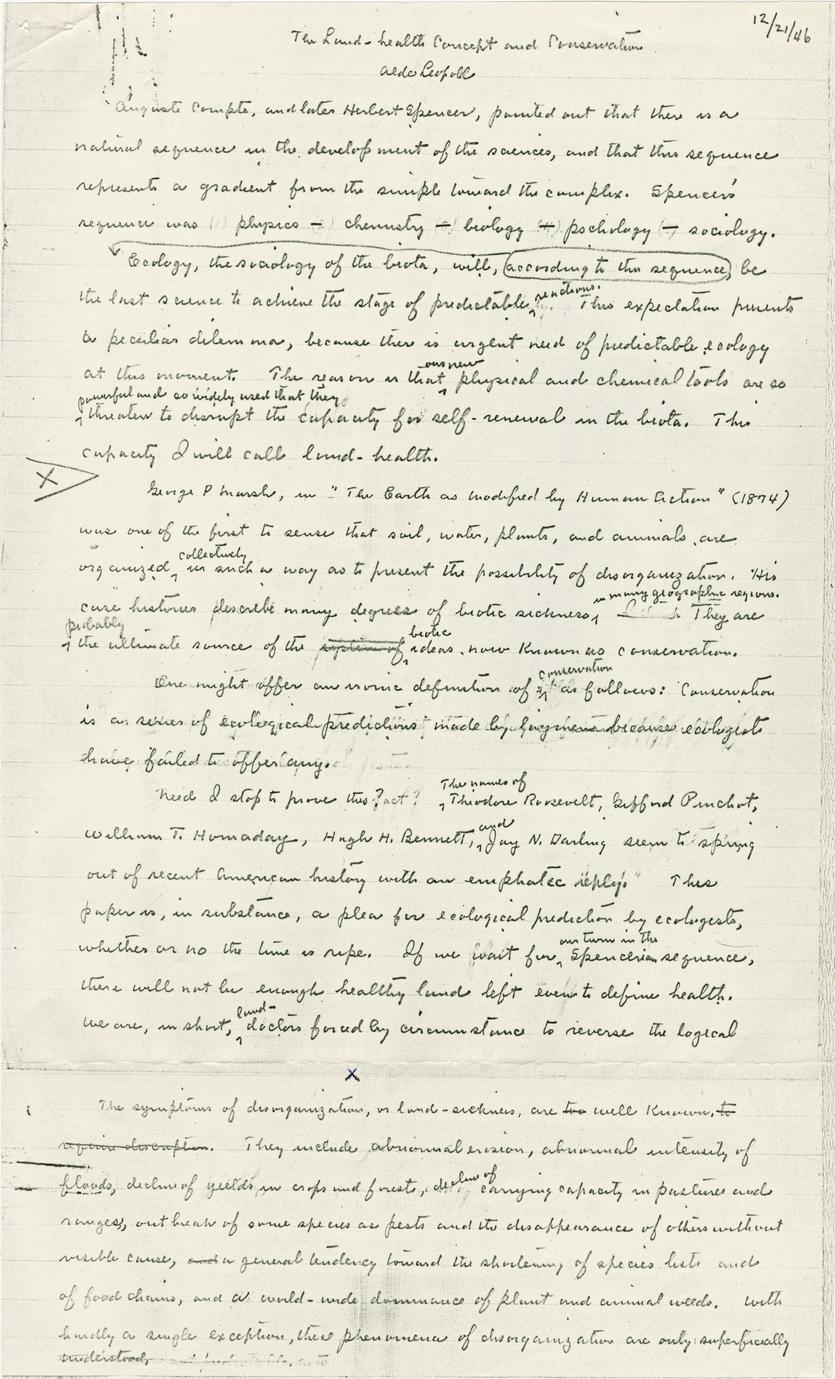 12/21/46
The Land-health Concept and Conservation
Aldo Leopold
Auguste Compte, and later Herbert Spencer, pointed out that there is a
natural sequence in the development of the sciences, and that this sequence
represents a gradient from the simple toward the complex. Spencer's
sequence was physics – chemistry – biology – pschology – sociology.
Ecology, the sociology of the biota, will, according to this sequence, be
the last science to achieve the stage of predictable reactions. This expectation presents
a peculiar dilemma, because there is urgent need of predictable ecology
at this moment. The reason is that our new physical and chemical tools are so
powerful and so widely used that they
threaten to disrupt the capacity for self-renewal in the biota. This
capacity I will call land-health.
X
George P Marsh, in "The Earth as Modified by Human Action" (1874)
was one of the first to sense that soil, water, plants, and animals are
organized collectively in such a way as to present the possibility of disorganization. His
case histories describe many degrees of biotic sickness in many geographic regions. They are
probably
the ultimate source of the system of biotic ideas now known as conservation.
One might offer an ironic definition of conservation as follows: Conservation
is a series of ecological predictions made by because ecologists
have failed to offer any.
Need I stop to prove this? The names of Theodore Roosevelt, Gifford Pinchot,
William T. Hornaday, Hugh H. Bennett, and Jay N. Darling seem to spring
out of recent American history with an emphatic This
paper is, in substance, a plea for ecological prediction by ecologists,
whether or no the time is ripe. If we wait for our turn in the Spencerian sequence,
there will not be enough healthy land left even to define health.
We are, in short, land-doctors forced by circumstance to reverse the logical
X
The symptoms of disorganization, or land-sickness, are too well known, to
require description. They include abnormal erosion, abnormal intensity of
floods, decline of yields in crops and forests, decline of carrying capacity in pastures and
ranges, outbreak of some species as pests and the disappearance of others without
visible cause, and a general tendency toward the shortening of species lists and
of food chains, and a world-wide dominance of plant and animal weeds. With
hardly a single exception, these phenomena of disorganization are only superficially
understood,